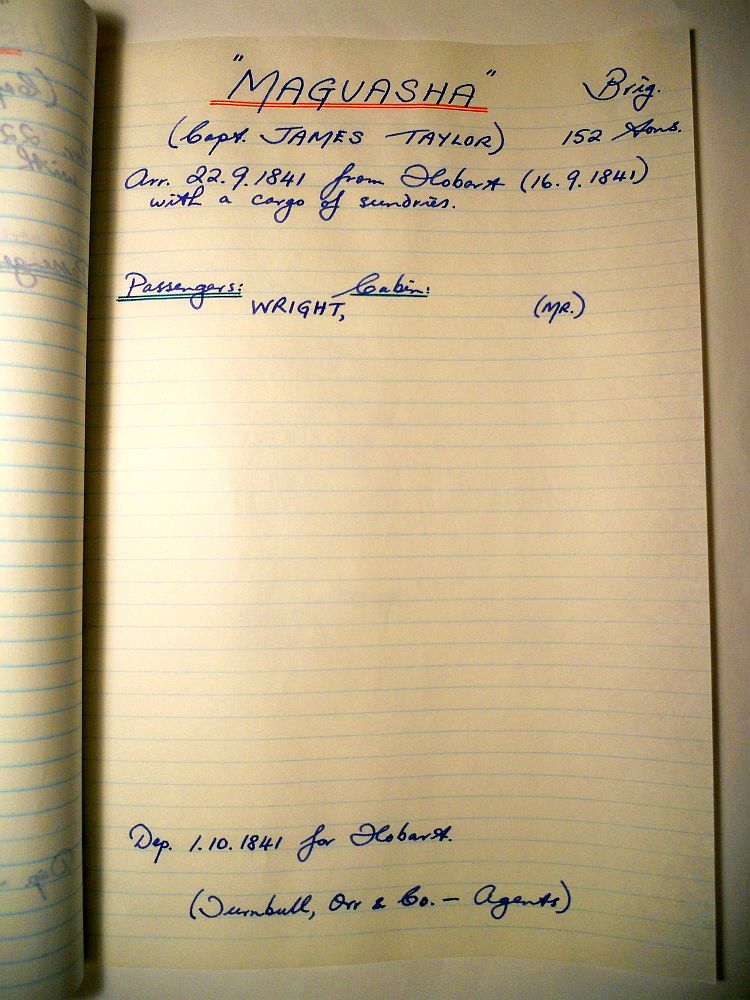 "MAGUASHA" Brig.
(Capt. JAMES TAYLOR) 152 tons.
Arr. 22.9.1841 from Hobart (16.9.1841)
with a cargo of sundries.
Passengers: Cabin:
WRIGHT, (MR.)
Dep. 1.10.1841 for Hobart.
(Turnbull, Orr & Co. - Agents)